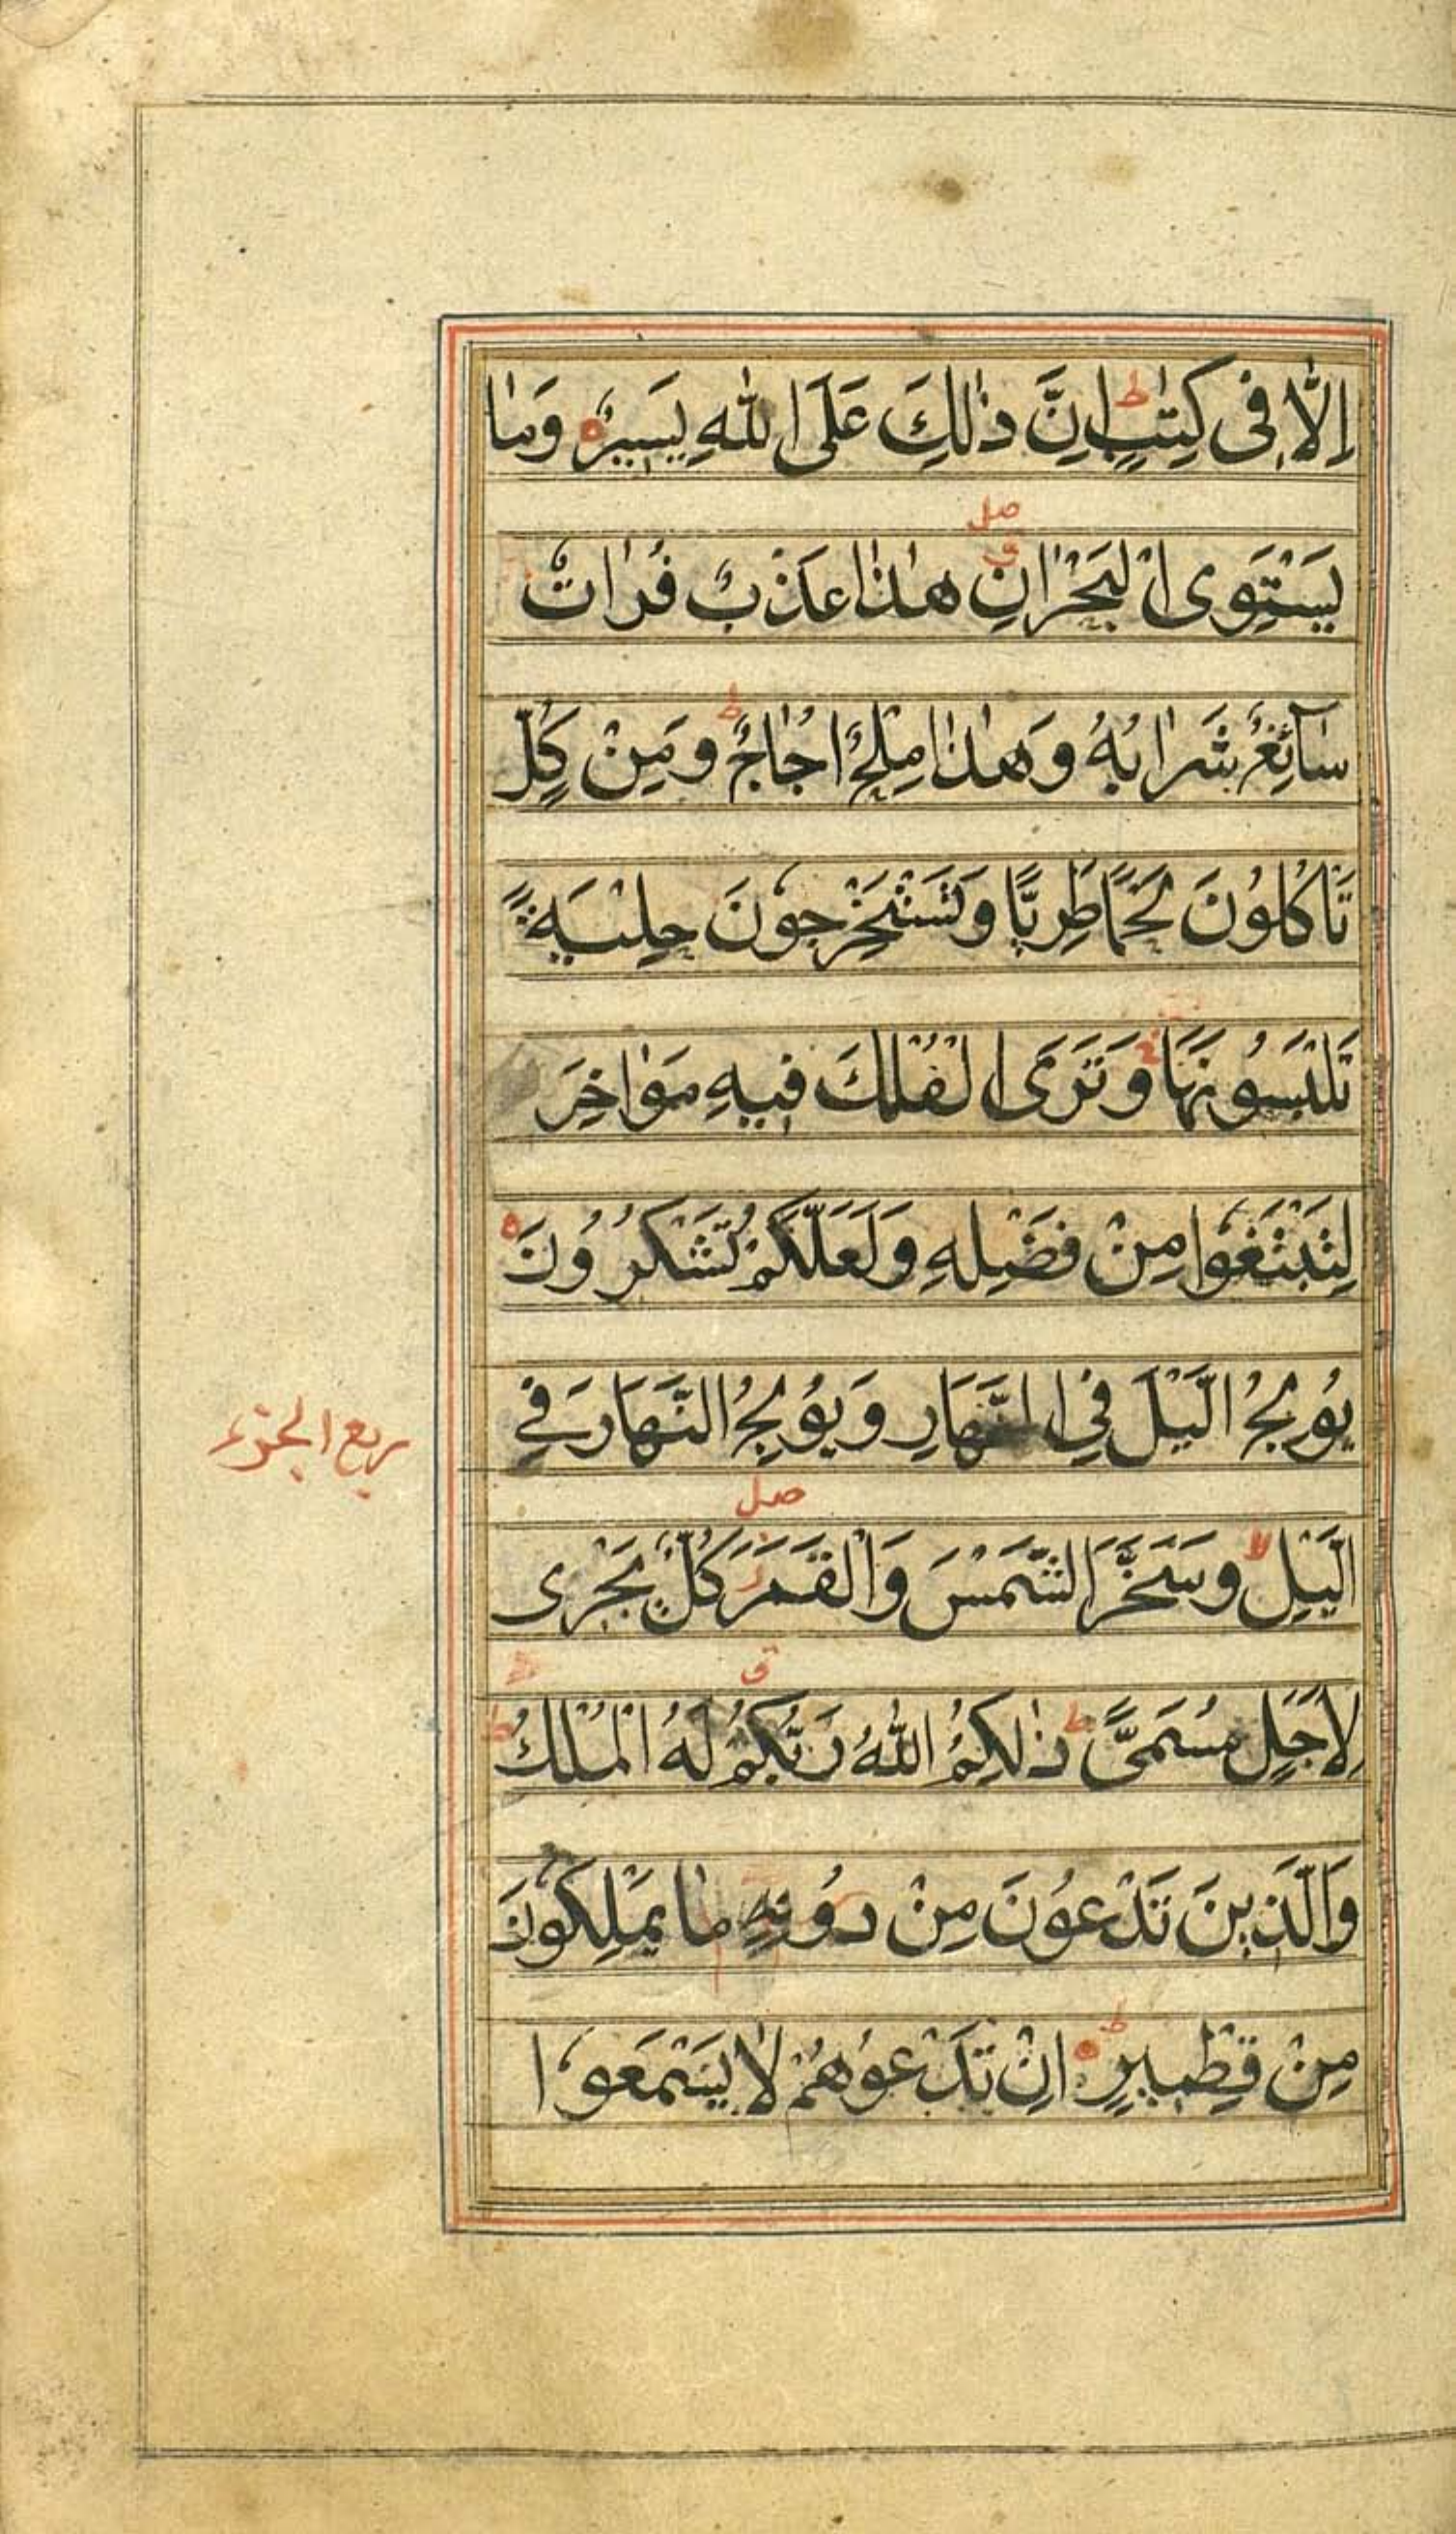 اِلَّا فِى كِتٰبٍ ط اِنَّ ذٰلِكَ عَلَى اللّٰهِ يَسِيْرٌ ه وَمَا
صل
يَسْتَوِى الْبَحْرَانِ ق هٰذَا عَذْبٌ فُرَاتٌ
سَآئِغٌ شَرَابُهُ وَهٰذَا مِلْحٌ اُجَاجٌ ط وَمِنْ كُلٍّ
تَاْكُلُوْنَ لَحْمًا طَرِيًّا وَتَسْتَخْرِجُوْنَ حِلْيَةً
تَلْبَسُوْنَهَا ج وَتَرَى الْفُلْكَ فِيهِ مَوَاخِرَ
لِتَبْتَغُوْا مِنْ فَضْلِهِ وَلَعَلَّكُمْ تَشْكُرُوْنَ ه
يُوْلِجُ الَّيْلَ فِى النَّهَارِ وَيُوْلِجُ النَّهَارَ فِي
ربع الجزء
صل
الَّيْلِ لا وَسَخَّرَ الشَّمْسَ وَالْقَمَرَ ز كُلٌّ يَجْرِى
ق
لِاَجَلٍ مُسَمًّى ط ذٰلِكُمُ اللّٰهُ رَبُّكُمْ لَهُ الْمُلْكُ ط
وَالَّذِينَ تَدْعُوْنَ مِنْ دُوْنِهِ مَا يَمْلِكُوْنَ
مِنْ قِطْمِيرٍ ط ه اِنْ تَدْعُوْهُمْ لَا يَسْمَعُوْا